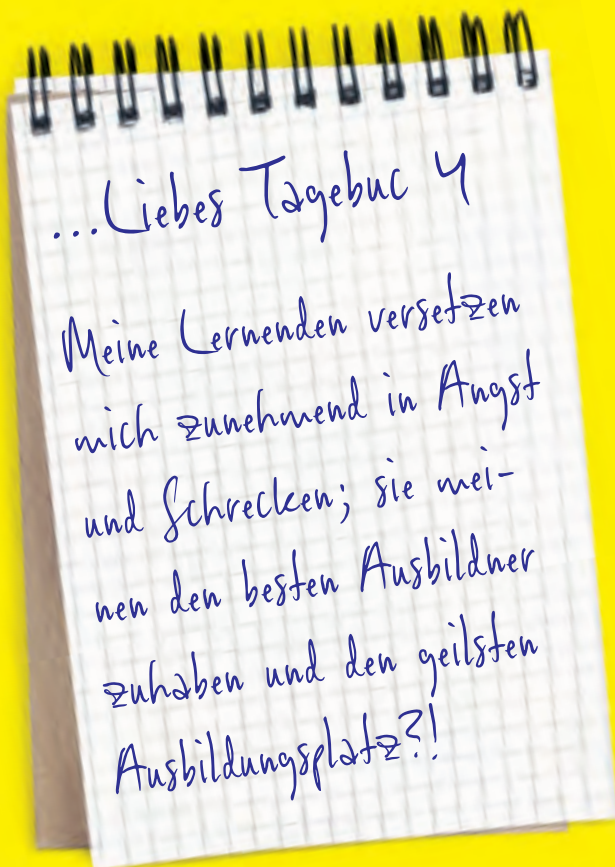 ...Liebes Tagebuc 4
Meine Lernenden versetzen
mich zunehmend in Angst
und Schrecken; sie mei-
nen den besten Ausbildner
zuhaben und den geilsten
Ausbildungsplatz?!